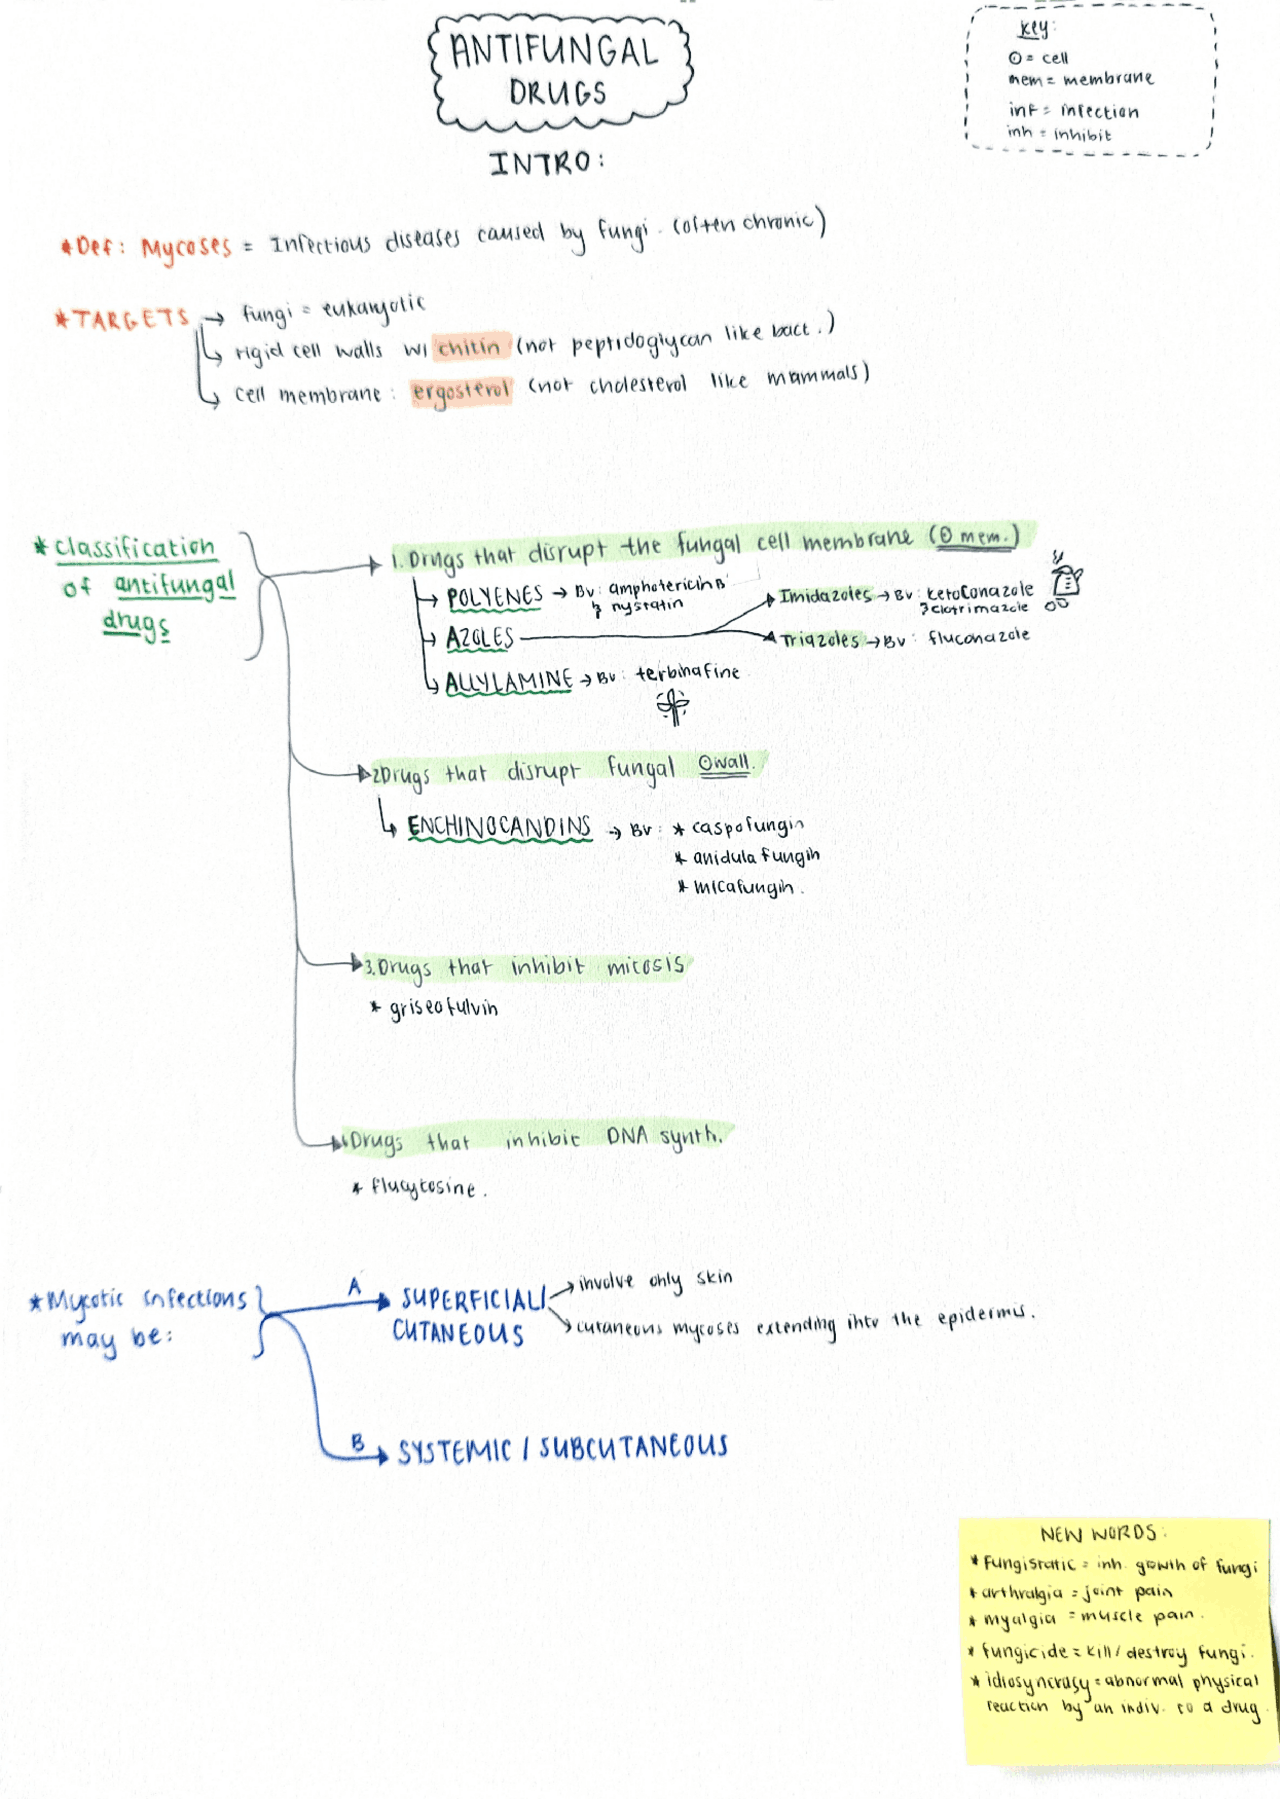 ANTIFUNGAL
DRUGS
INTRO:
key:
⊙ = cell
mem = membrane
inf = infection
inh = inhibit
*Def: Mycoses = Infectious diseases caused by fungi. (often chronic)
*TARGETS → fungi = eukaryotic
↳ rigid cell walls w/ chitin (not peptidoglycan like bact.)
↳ cell membrane: ergosterol (not cholesterol like mammals)
* classification
of antifungal
drugs
1. Drugs that disrupt the fungal cell membrane (⊙ mem.)
→ POLYENES → Bv: amphotericin B
& nystatin
→ AZOLES
Imidazoles → Bv: ketoconazole
& clotrimazole
Triazoles → Bv: fluconazole
↳ ALLYLAMINE → Bv: terbinafine
2 Drugs that disrupt fungal ⊙wall.
↳ ENCHINOCANDINS → Bv: * caspofungin
* anidulafungin
* micafungin.
3. Drugs that inhibit mitosis
* griseofulvin
4 Drugs that inhibit DNA synth.
* flucytosine.
*Mycotic infections
may be:
A SUPERFICIAL/
CUTANEOUS
→ involve only skin
→ cutaneous mycoses extending into the epidermis.
B SYSTEMIC / SUBCUTANEOUS
NEW WORDS:
* Fungistatic = inh. growth of fungi
* arthralgia = joint pain
* myalgia = muscle pain.
* fungicide = kill/destroy fungi.
* idiosyncrasy = abnormal physical
reaction by an indiv. to a drug.